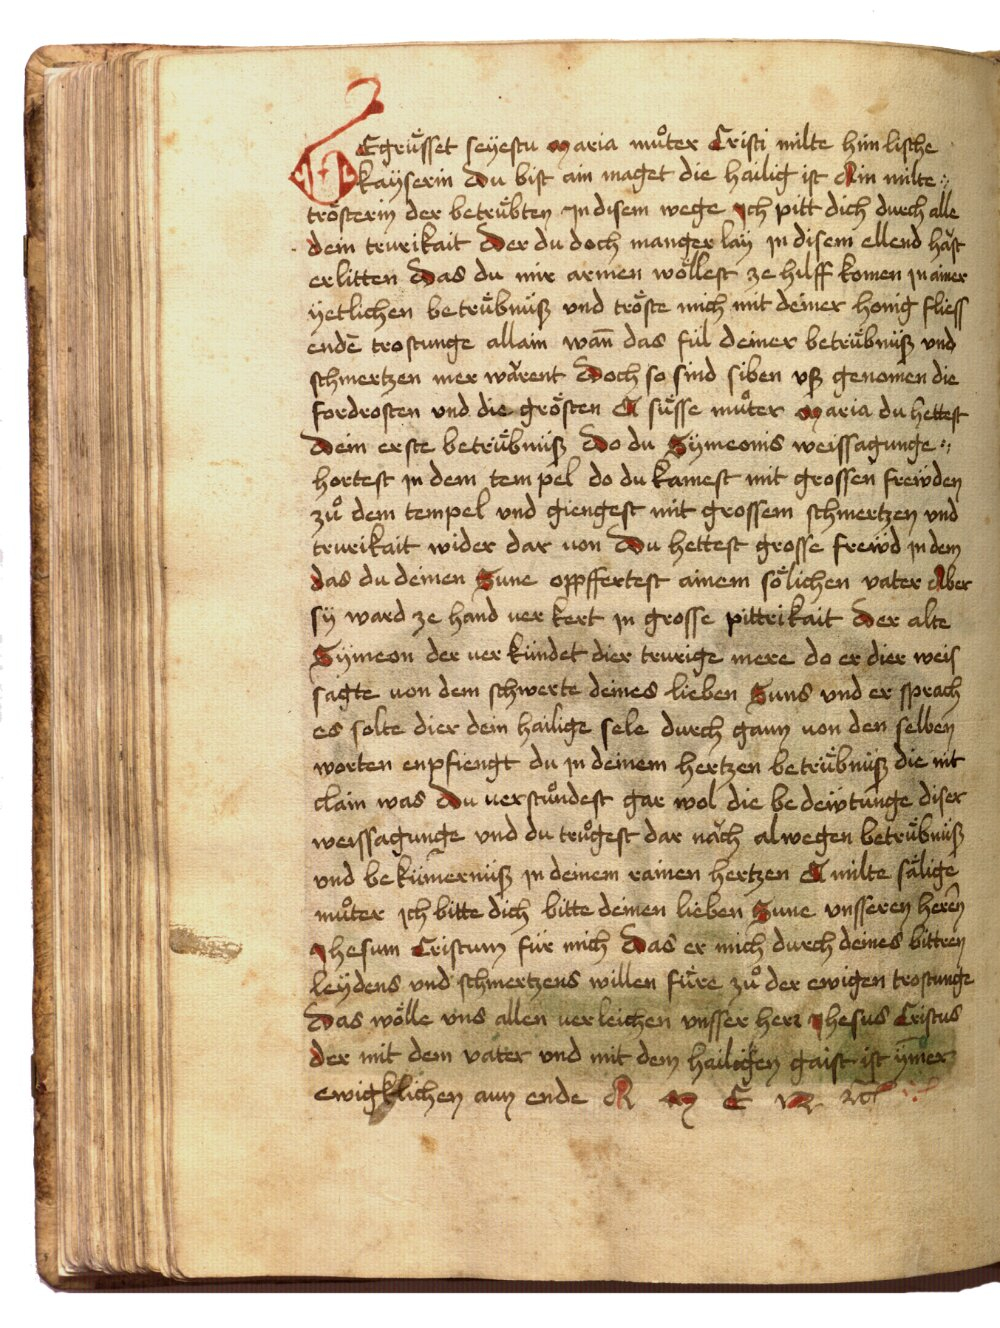 Gegrüsset seyestu maria mu̇̊ter Cristi milte himlische
kaÿserin Du bist ain maget die hailig ist Ain milte
trösterin der betrübten In disem wege Ich pitt dich durch alle
dein trurikait Der du doch manger lay in disem ellend häst
erlitten Das du mir armen wöllest ze hilff komen in ainer
ÿetlichen betrübnüß und tröste mich mit deiner honig fliess
endē trostunge allain wañ das fül deiner betrübnüß und
schmertzen mer wärent Doch so sind siben vß genomen die
fordrosten und die grösten O süsse mu̇̊ter maria du hettest
Dein erste betrübnüß Do du Sÿmeonis weissagunge
hortest in dem tempel do du kamest mit grossen frewden
zů dem tempel und giengest mit grossem schmertzen und
trurikait wider dar von Du hettest grosse frewd in dem
das du deinen Sune oppffertest ainem sölichen vater Aber
sÿ ward ze hand verkert in grosse pittrikait Der alte
Sÿmeon der verkündet dier trurige mere do er dier weis
sagte von dem schwerte deines lieben Suns und er sprach
es solte dier dein hailige sele durch gaun von den selben
worten enpfiengt du in deinem hertzen betrübnüß die nit
clain was Du verstůndest gar wol die bedeẅtunge diser
weissagunge und du trůgest dar näch alwegen betrübnüß
und bekümernüß in deinem rainen hertzen O milte sälige
můter ich bitte dich bitte deinen lieben Sune unsseren herēn
Jhesum Cristum für mich Das er mich durch deines bittren
leÿdens und schmertzens willen füre zů der ewigen trostunge
Das wölle uns allen verleichen unsser herr Jhesus Cristus
der mit dem vater und mit dem hailigen gaist ist ÿmer
ewigklichen aun ende A M E N